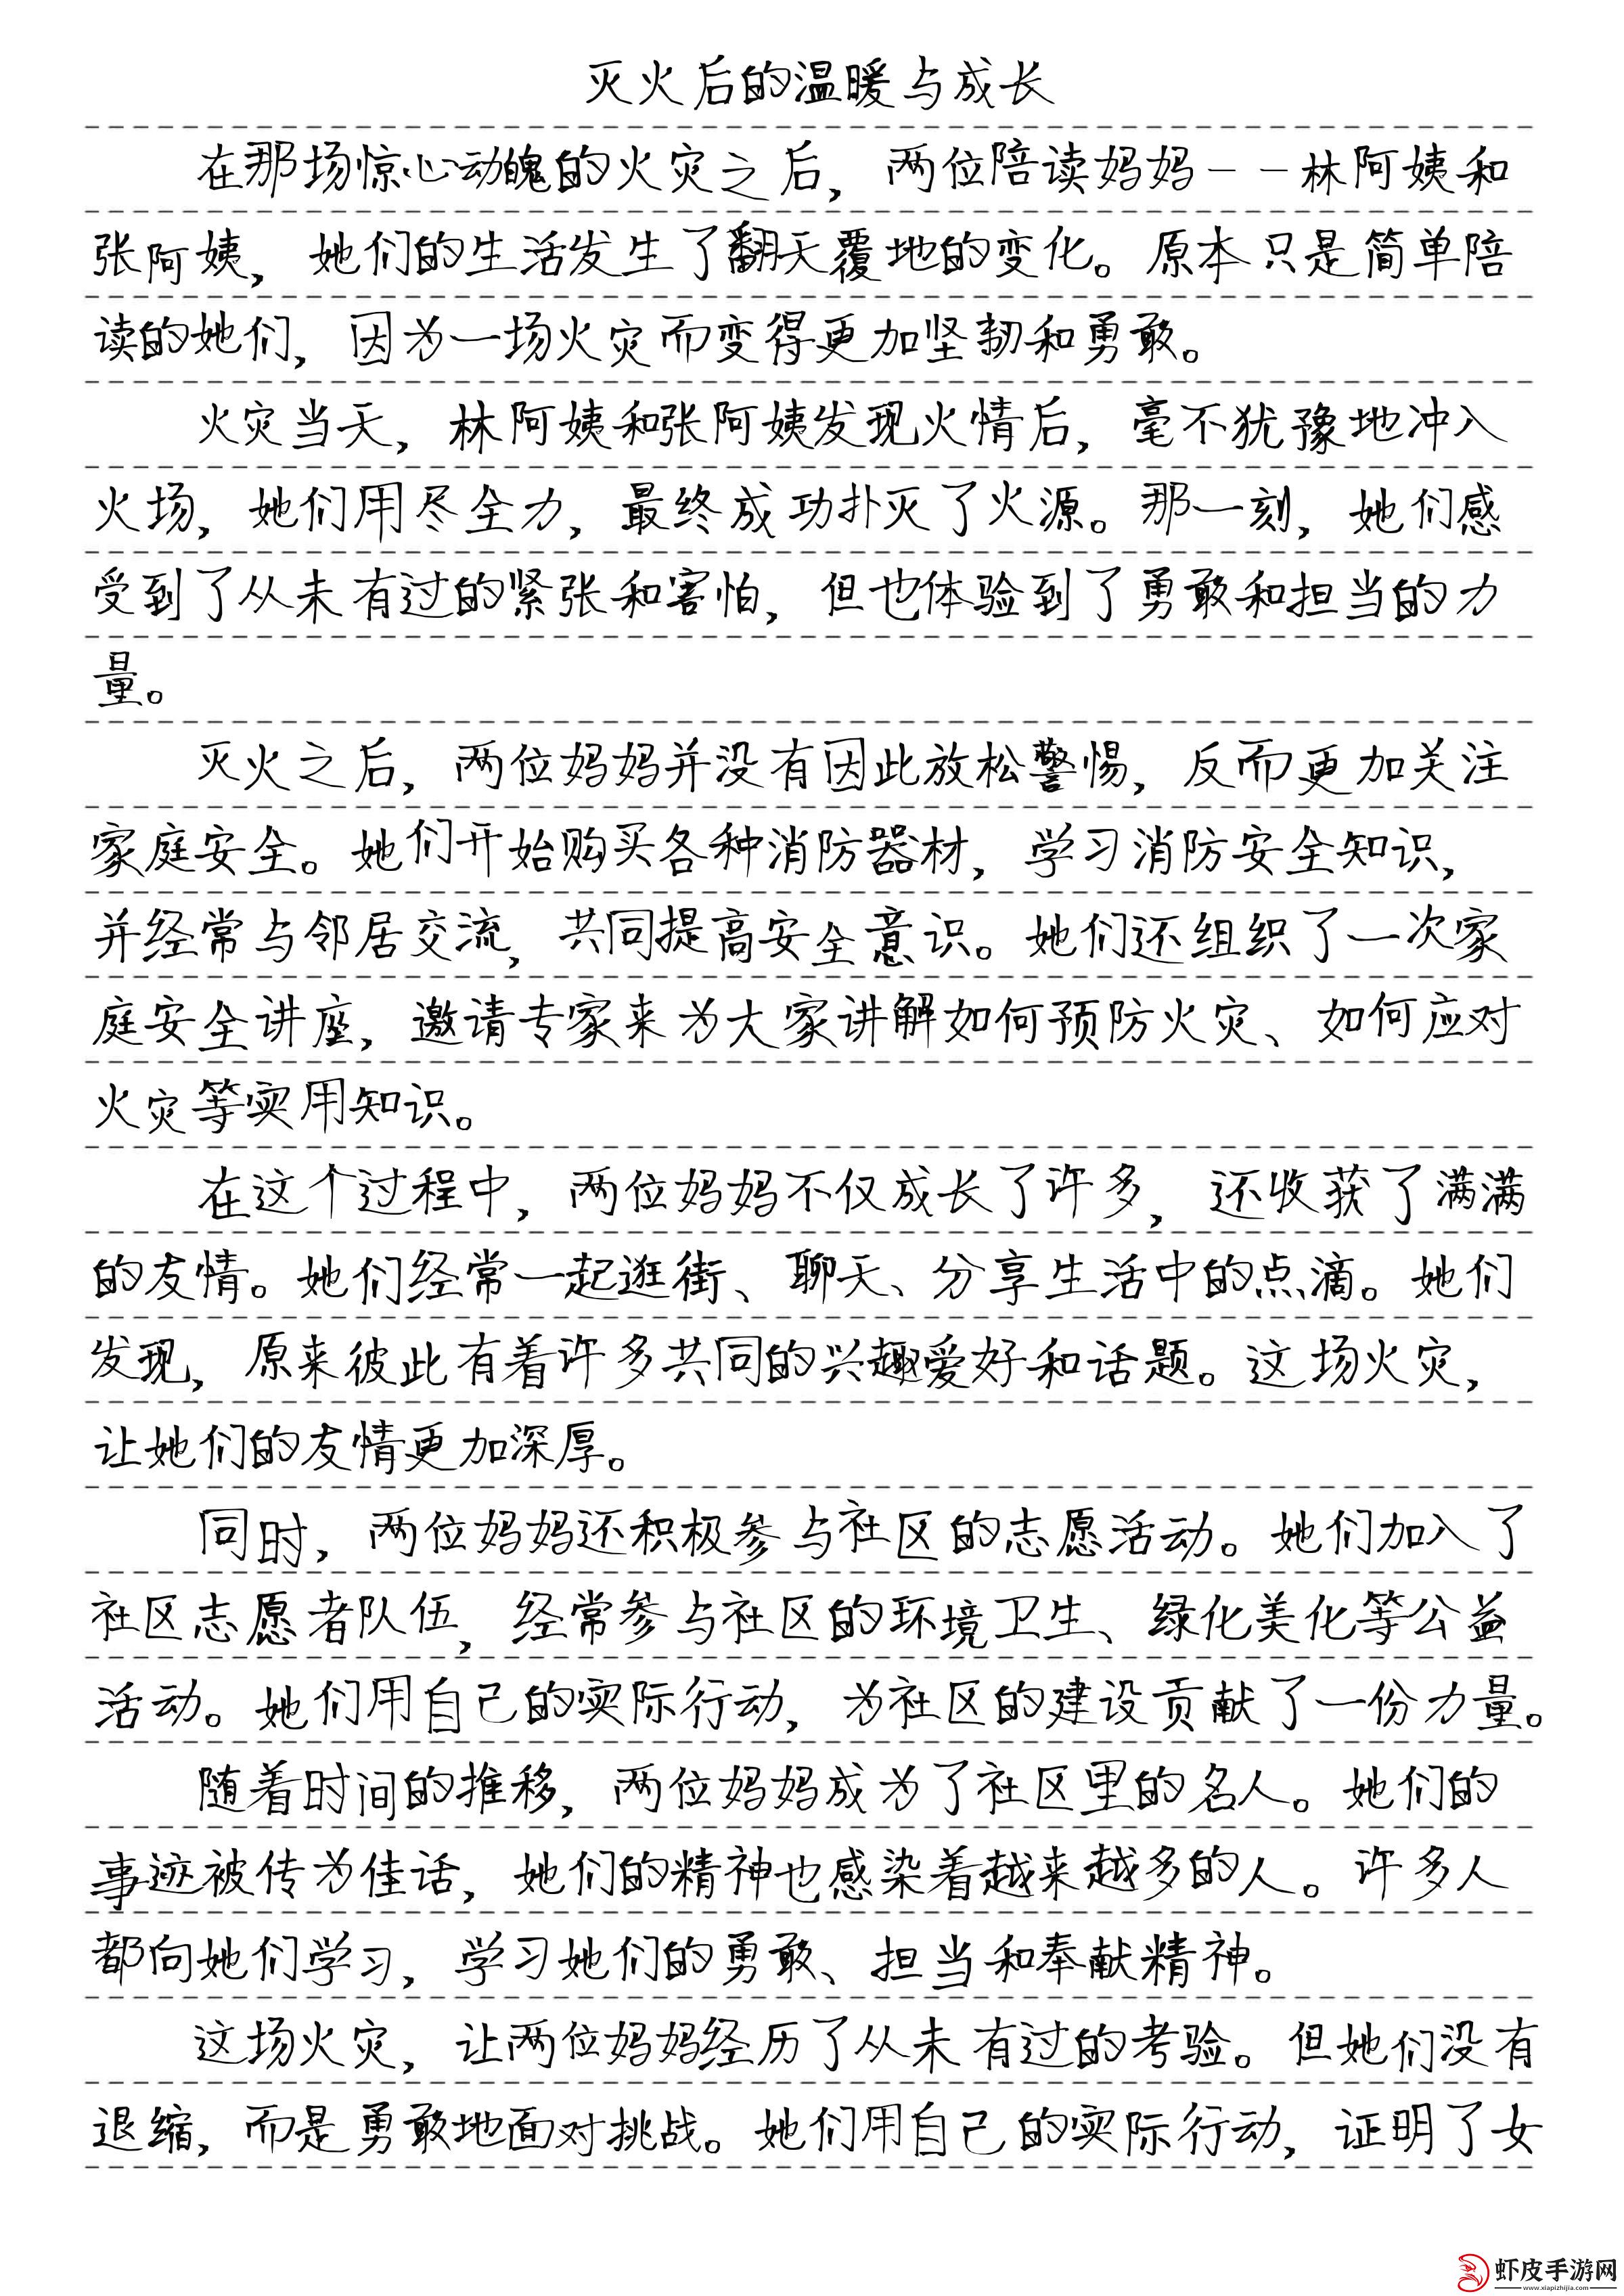 灭火后的温暖与成长
在那场惊心动魄的火灾之后，两位陪读妈妈--林阿姨和
张阿姨，她们的生活发生了翻天覆地的变化。原本只是简单陪
读的她们，因为一场火灾而变得更加坚韧和勇敢。
火灾当天，林阿姨和张阿姨发现火情后，毫不犹豫地冲入
火场，她们用尽全力，最终成功扑灭了火源。那一刻，她们感
受到了从未有过的紧张和害怕，但也体验到了勇敢和担当的力
量。
灭火之后，两位妈妈并没有因此放松警惕，反而更加关注
家庭安全。她们开始购买各种消防器材，学习消防安全知识，
并经常与邻居交流，共同提高安全意识。她们还组织了一次家
庭安全讲座，邀请专家来为大家讲解如何预防火灾、如何应对
火灾等实用知识。
在这个过程中，两位妈妈不仅成长了许多，还收获了满满
的友情。她们经常一起逛街、聊天、分享生活中的点滴。她们
发现，原来彼此有着许多共同的兴趣爱好和话题。这场火灾，
让她们的友情更加深厚。
同时，两位妈妈还积极参与社区的志愿活动。她们加入了
社区志愿者队伍，经常参与社区的环境卫生、绿化美化等公益
活动。她们用自己的实际行动，为社区的建设贡献了一份力量。
随着时间的推移，两位妈妈成为了社区里的名人。她们的
事迹被传为佳话，她们的精神也感染着越来越多的人。许多人
都向她们学习，学习她们的勇敢、担当和奉献精神。
这场火灾，让两位妈妈经历了从未有过的考验。但她们没有
退缩，而是勇敢地面对挑战。她们用自己的实际行动，证明了女
虾皮手游网
www.xiapizhijia.com